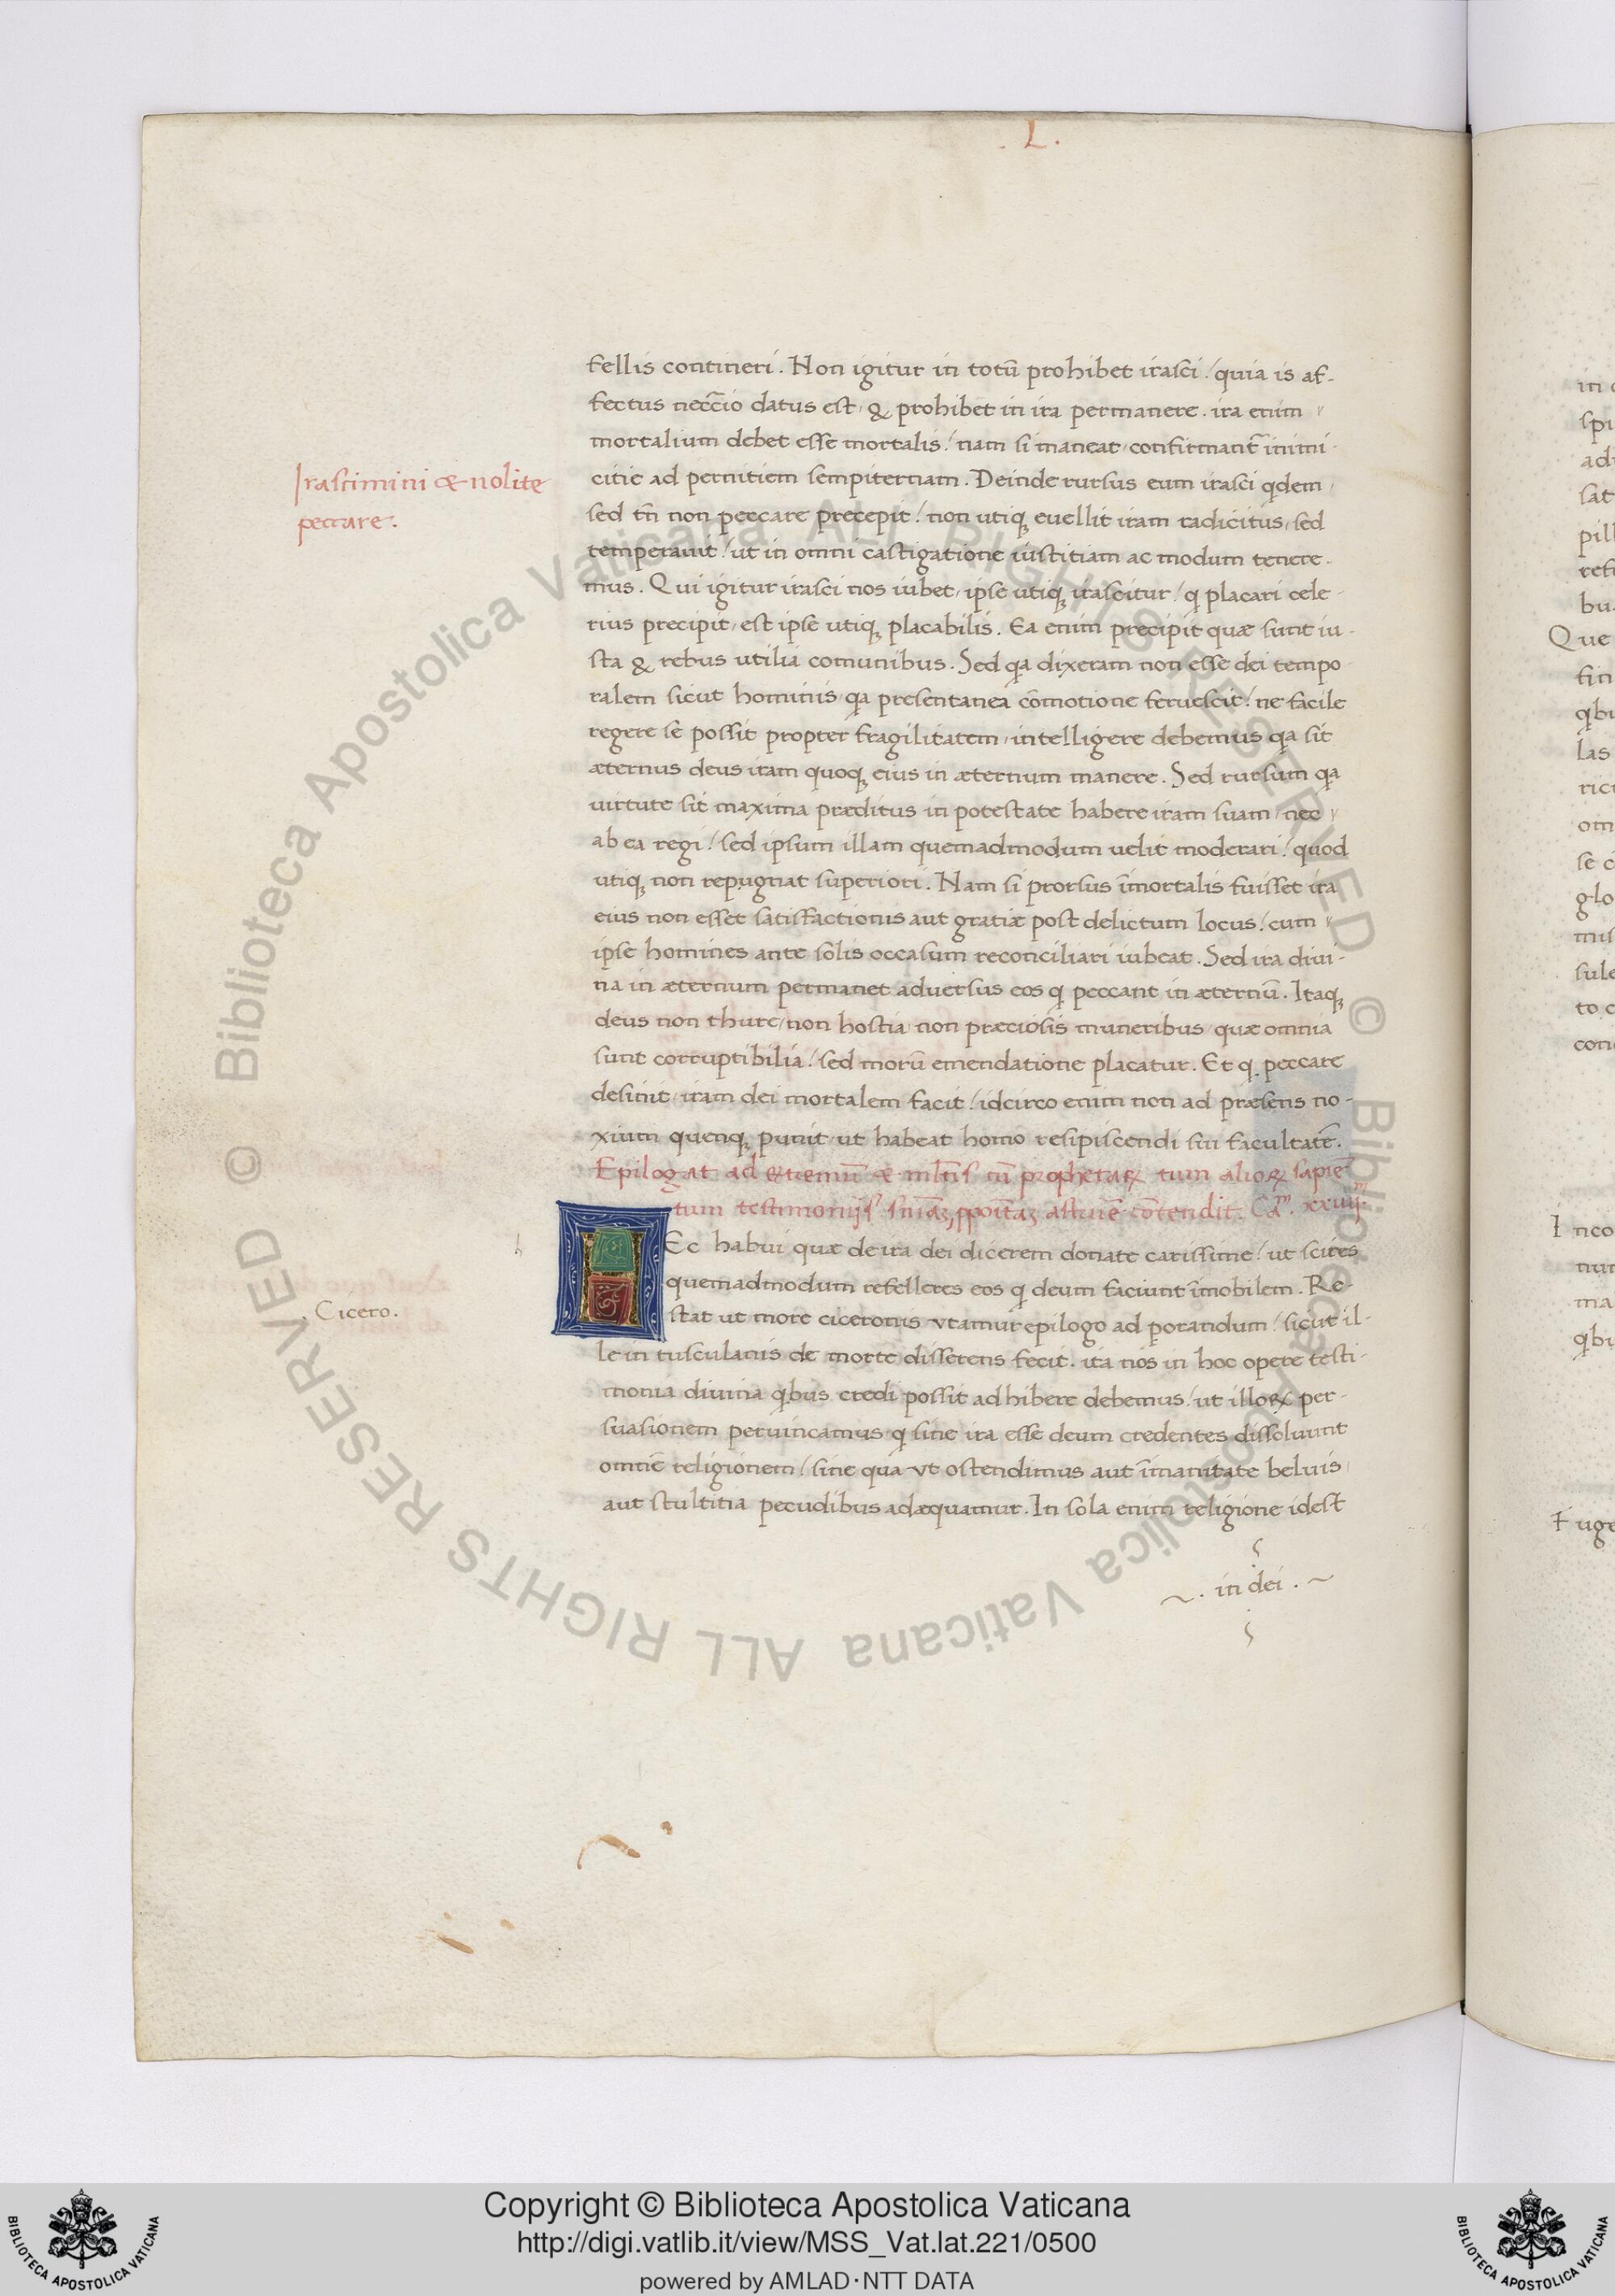 . L .
fellis contineri. Non igitur in totū prohibet irasci / quia is af-
fectus neccīo datus est, & prohibet in ira permanere. ira enim
mortalium debet esse mortalis / nam si maneat, confirmant᷑ inimi-
citie ad pernitiem sempiternam. Deinde rursus eum irasci qdem,
Irascimini & nolite
peccare.
sed tn̄ non peccare precepit / non utiq; euellit iram radicitus, sed
temperauit / ut in omni castigatione iustitiam ac modum tenere-
mus. Qui igitur irasci nos iubet, ipse utiq; irascitur / q placari cele-
rius precipit, est ipse utiq; placabilis. Ea enim precipit quæ sunt iu-
sta & rebus utilia comunibus. Sed qa dixeram non esse dei tempo
ralem sicut hominis, qa presentanea cōmotione feruescit / ne facile
regere se possit propter fragilitatem, intelligere debemus qa sit
æternus deus iram quoq; eius in æternum manere. Sed rursum qa
uirtute sit maxima præditus in potestate habere iram suam / nec
ab ea regi / sed ipsum illam quemadmodum uelit moderari / quod
utiq; non repugnat superiori. Nam si prorsus īmortalis fuisset ira
eius non esset satisfactionis aut gratiæ post delictum locus / cum
ipse homines ante solis occasum reconciliari iubeat. Sed ira diui-
na in æternum permanet aduersus eos q peccant in æternū. Itaq;
deus non thure, non hostia, non præciosis muneribus, quæ omnia
sunt corruptibilia / sed morū emendatione placatur. Et q peccare
desinit, iram dei mortalem facit / idcirco enim non ad præsens no-
xium quenq; punit, ut habeat homo resipiscendi sui facultatē.
Epilogat ad extremū & mltis cū prophetaꝝ tum alioꝝ sapiē
tum testimonijs contendit. Ca. xxiiij.
HEc habui quæ de ira dei dicerem donate carissime / ut scires
quemadmodum refelleres eos q deum faciunt īmobilem. Re-
Cicero.
stat ut more ciceronis utamur epilogo ad porandum / sicut il-
le in tusculanis de morte disserens fecit. ita nos in hoc opere testi-
monia diuina qbus credi possit adhibere debemus / ut illoꝝ per-
suasionem peruincamus q sine ira esse deum credentes dissoluunt
omnē religionem / sine qua ut ostendimus aut īmanitate beluis,
aut stultitia pecudibus adæquamur. In sola enim religione idest
~ . in dei . ~
Copyright © Biblioteca Apostolica Vaticana
http://digi.vatlib.it/view/MSS_Vat.lat.221/0500
powered by AMLAD·NTT DATA